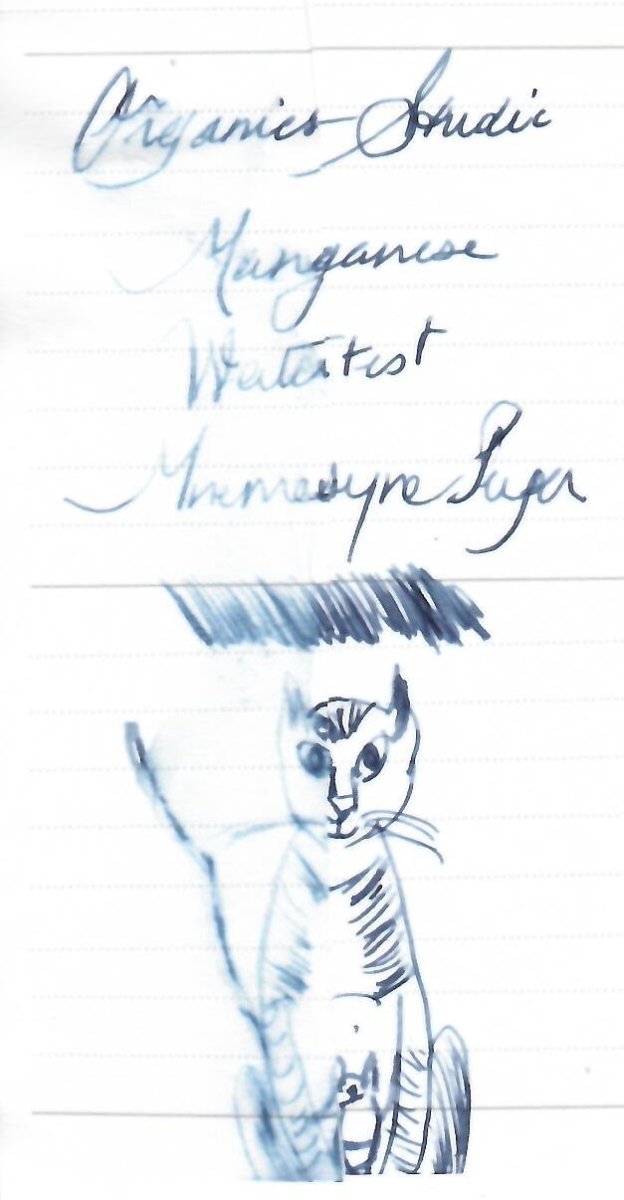 Organics Studio
Manganese
Water test
Mnemosyne Paper